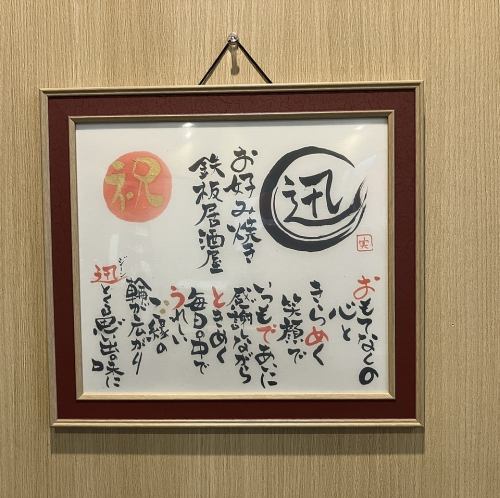 迅
お好み焼き
鉄板居酒屋
祝
おもてなしの
心と
きらめく
笑顔で
いつもであいに
感謝しながら
ときめく
毎日の中で
うれしい
ご縁の
輪が広がり
迅とくる思い出の味に
ジーン